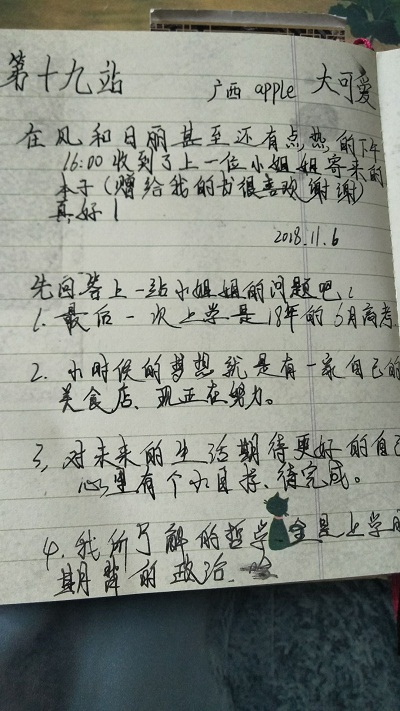 第十九站
广西 apple 大可爱
在风和日丽甚至还有点热的下午
16:00 收到了上一位小姐姐寄来的
本子(赠给我的书很喜欢谢谢)
真好！
2018.11.6
先回答上一站小姐姐的问题吧！
1. 最后一次上学是18年的6月高考.
2. 小时候的梦想就是有一家自己的
美食店、现正在努力。
3, 对未来的生活期待更好的自己
心里有个小目标、待完成。
4. 我所了解的哲学 全是上学
期 的政治